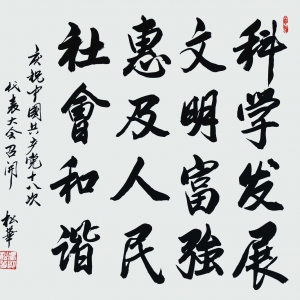 科学发展
文明富強
惠及人民
社會和谐
庆祝中國共产党十八次
代表大会召開
松華